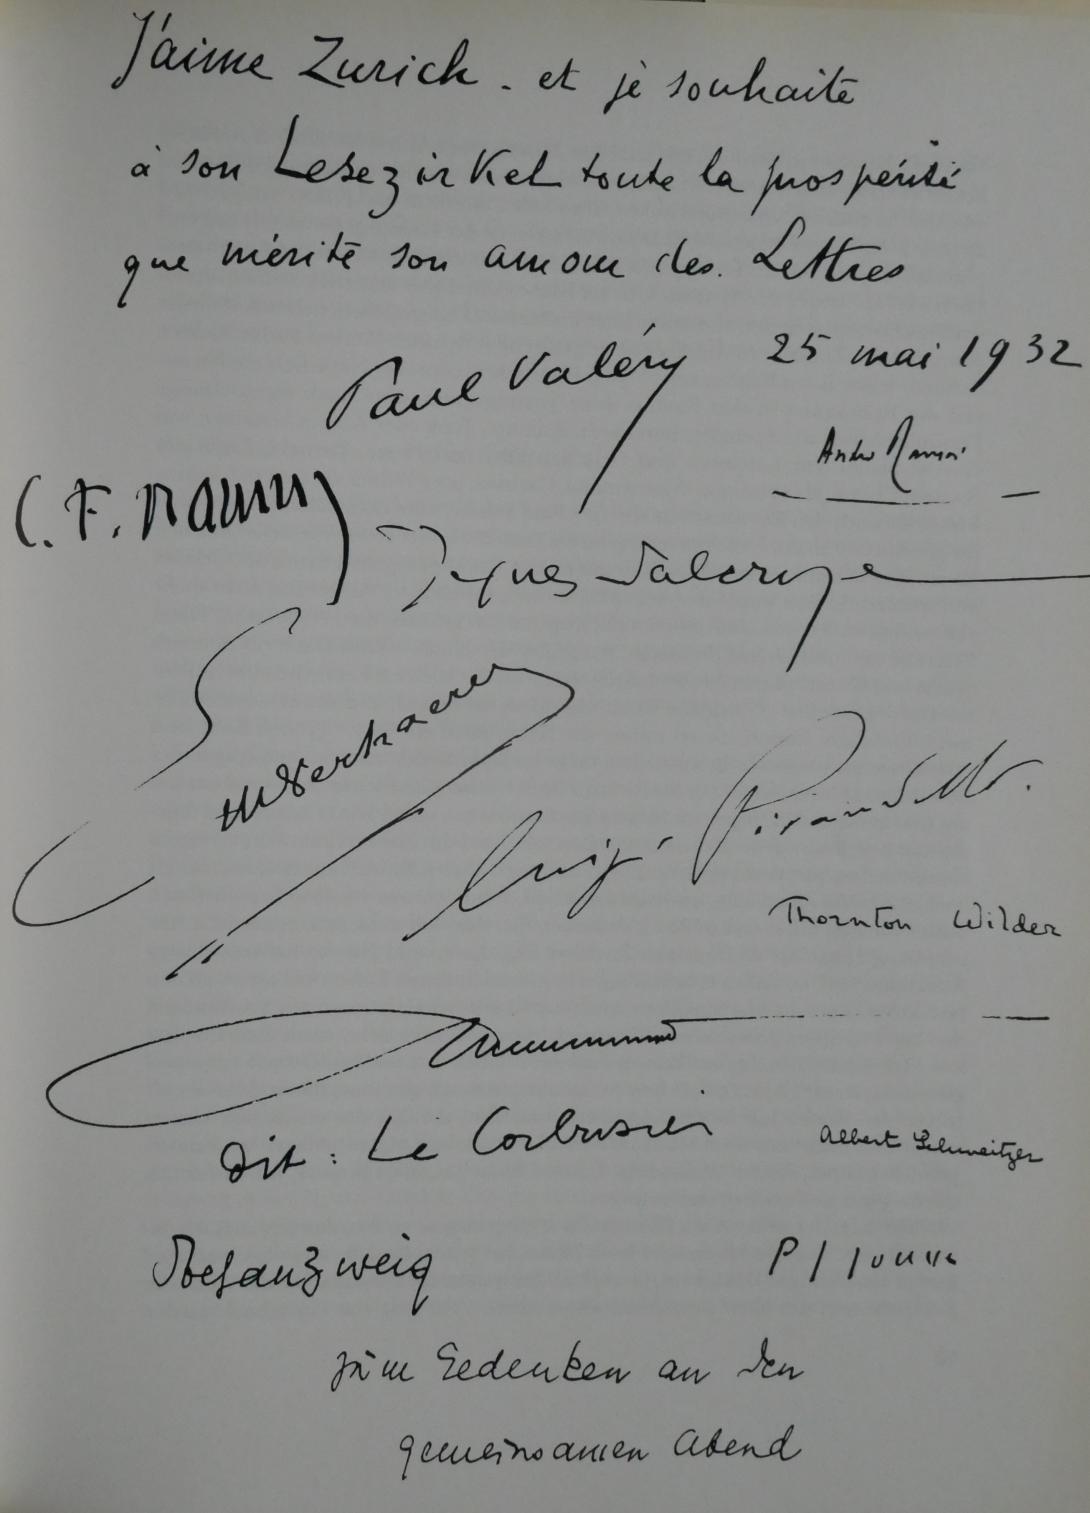 J'aime Zurich - et je souhaite
à son Lesezirkel toute la prospérité
que mérite son amour des Lettres
Paul Valéry 25 mai 1932
C. F. Ramuz
Verhaeren
Luigi Pirandello.
Thornton Wilder
dit : Le Corbusier
Albert Schweitzer
Stefan Zweig
P J Jouve
zum Gedenken an den
gemeinsamen Abend